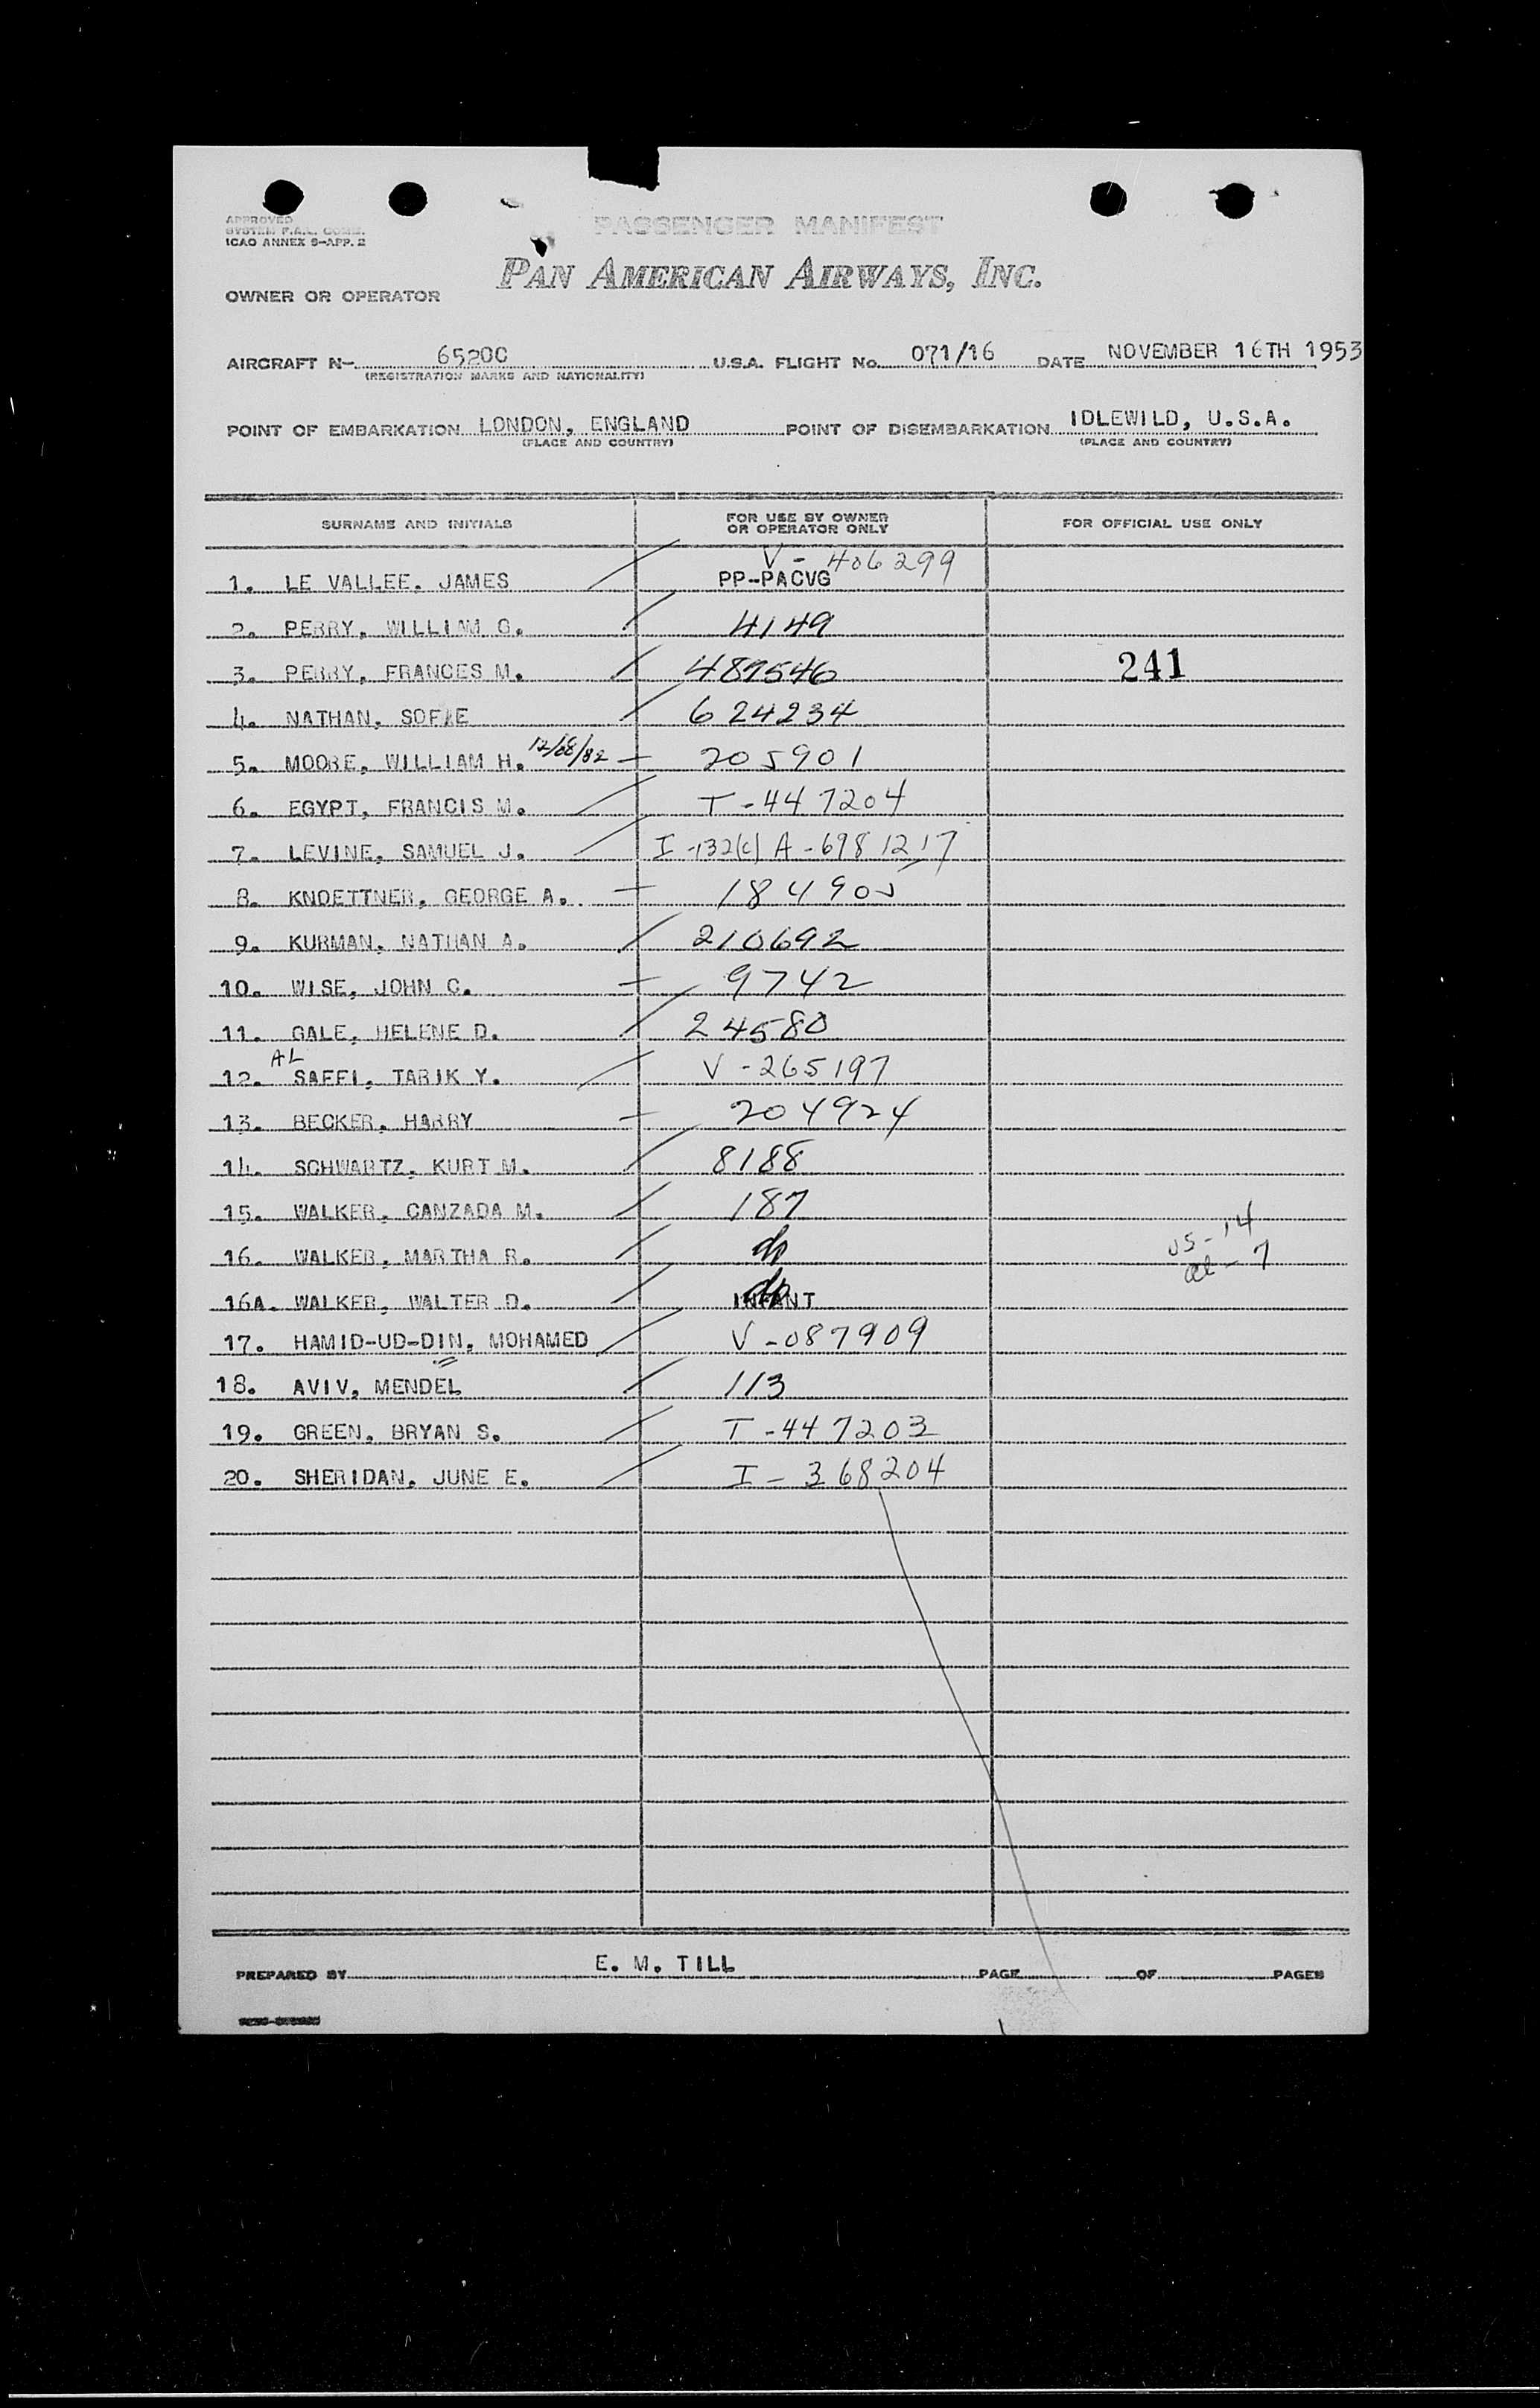 APPROVED
SYSTEM F.A.L. COMM.
ICAO ANNEX 9-APP. 2
PASSENGER MANIFEST
PAN AMERICAN AIRWAYS, INC.
OWNER OR OPERATOR
AIRCRAFT N- 6520C U.S.A. FLIGHT No. 071/16 DATE NOVEMBER 16TH 1953
(REGISTRATION MARKS AND NATIONALITY)
POINT OF EMBARKATION LONDON, ENGLAND POINT OF DISEMBARKATION IDLEWILD, U.S.A.
(PLACE AND COUNTRY) (PLACE AND COUNTRY)
SURNAME AND INITIALS FOR USE BY OWNER OR OPERATOR ONLY FOR OFFICIAL USE ONLY
V - 406299
1. LE VALLEE, JAMES PP-PACVG
2. PERRY, WILLIAM G. 4149
3. PERRY, FRANCES M. 487546 241
4. NATHAN, SOFIE 624234
5. MOORE, WILLIAM H. 205901
6. EGYPT, FRANCIS M. T-447204
7. LEVINE, SAMUEL J. I-132(c) A-6981217
8. KNOETTNER, GEORGE A. 184905
9. KURMAN, NATHAN A. 210692
10. WISE, JOHN C. 9742
11. GALE, HELENE D. 24580
AL
12. SAFFI, TARIK Y. V-265197
13. BECKER, HARRY 204924
14. SCHWARTZ, KURT M. 8188
15. WALKER, CANZADA M. 187
US - 14
16. WALKER, MARTHA R. do al - 7
16A. WALKER, WALTER D. do INFANT
17. HAMID-UD-DIN, MOHAMED V-087909
18. AVIV, MENDEL 113
19. GREEN, BRYAN S. T-447203
20. SHERIDAN, JUNE E. I-368204
PREPARED BY E. M. TILL PAGE OF PAGES